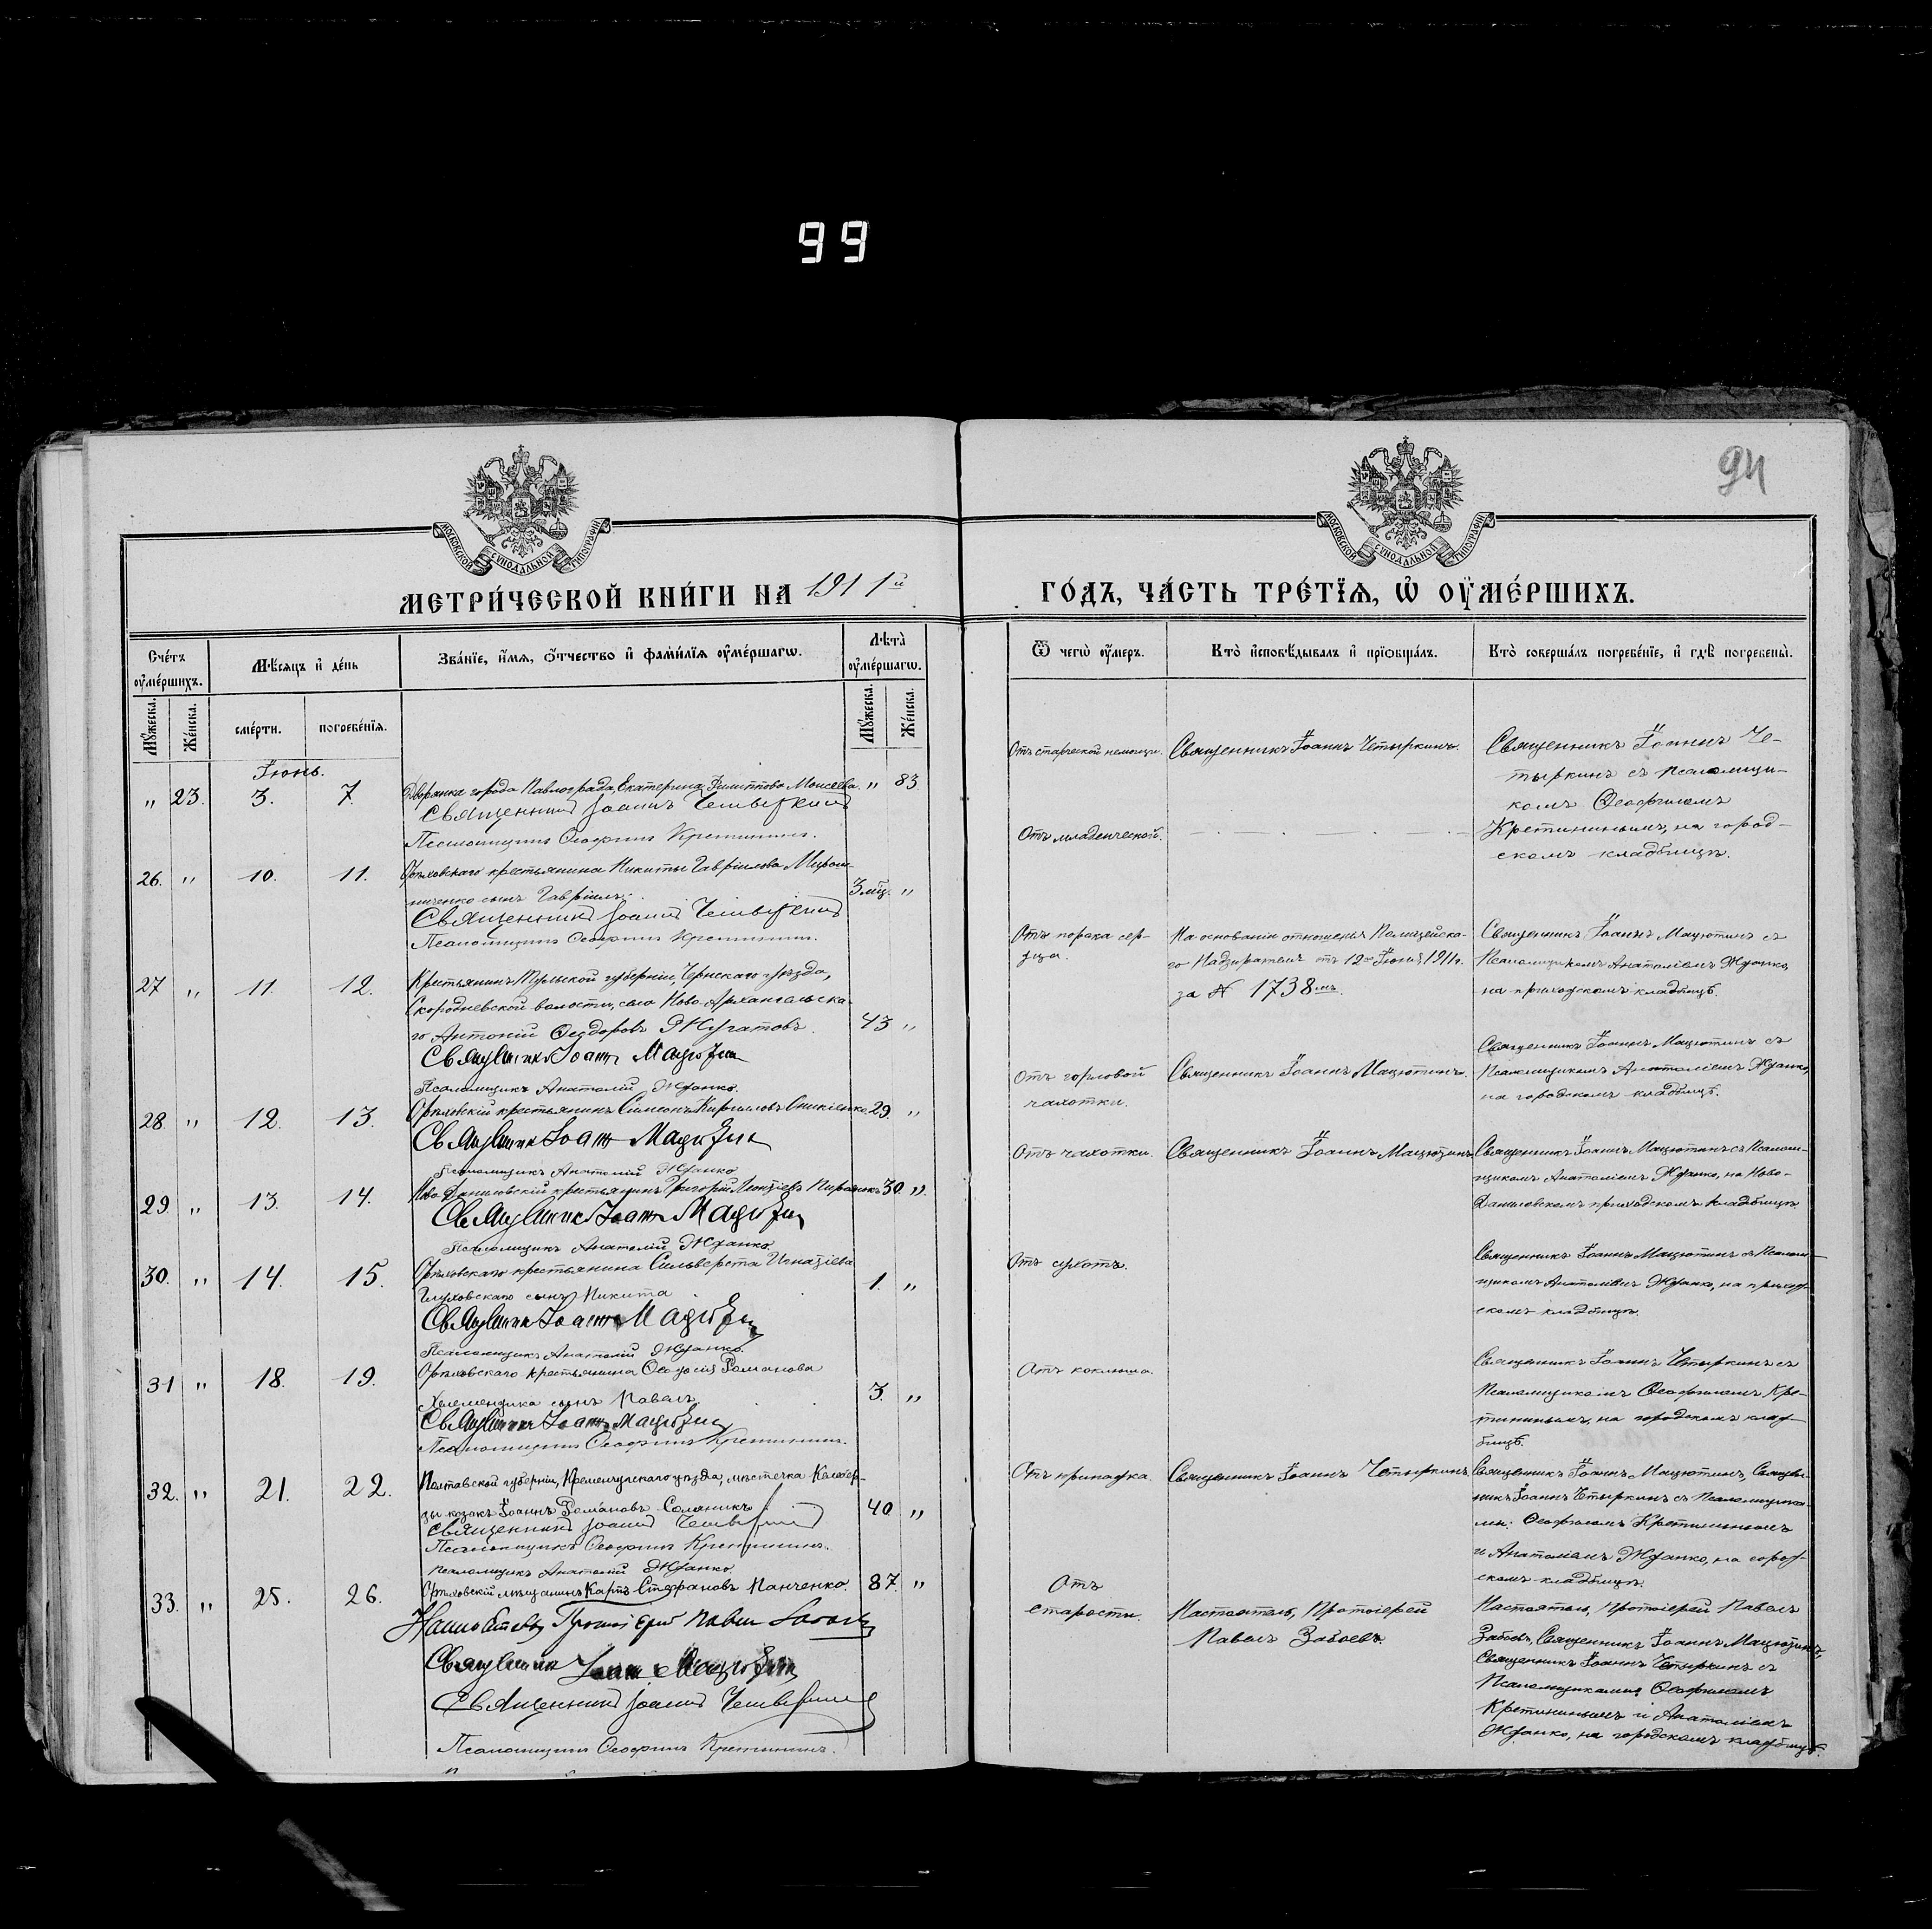 99
94
МОСКОВСКОЙ СѴНОДАЛЬНОЙ ТИПОГРАФІИ
МОСКОВСКОЙ СѴНОДАЛЬНОЙ ТИПОГРАФІИ
МЕТРИ́ЧЕСКОЙ КНИ́ГИ НА 1911й
ГО́ДЪ, ЧА́СТЬ ТРЕ́ТЇѦ, Ѡ҆ ОУ҆МЕ́РШИХЪ.
Сче́тъ оу҆ме́ршихъ.
Мѣ́сяцъ и҆ де́нь
Зва́нїе, и҆́мѧ, ѻ҆́тчество и҆ фами́лїѧ оу҆ме́ршагѡ.
Лѣта̀ оу҆ме́ршагѡ.
Мꙋ́жеска.
Же́нска.
сме́рти.
погребе́нїѧ.
Мꙋ́жеска.
Же́нска.
Ѿ чегѡ̀ оу҆́меръ.
Кто̀ и҆сповѣ́дывалъ и҆ прїѡбща́лъ.
Кто̀ соверша́лъ погребе́нїе, и҆ гдѣ̀ погребены̀.
Іюнь.
„ 23. 3. 7. Дворянка города Павлограда Екатерина Филиппова Моисеева. „ 83
Священникъ Іоаннъ Четыркинъ
Псаломщикъ Ѳеофилъ Кретининъ.
Отъ старческой немощи. Священникъ Іоаннъ Четыркинъ.
Священникъ Іоаннъ Че-
тыркинъ съ псаломщи-
комъ Ѳеофиломъ
Кретининымъ, на город-
скомъ кладбищѣ.
26. „ 10. 11. Орѣховскаго крестьянина Никиты Гавріилова Мирош-
ниченко сынъ Гавріилъ. 3 мѣс. „
Священникъ Іоаннъ Четыркинъ
Псаломщикъ Ѳеофилъ Кретининъ.
Отъ младенческой.
27 „ 11. 12. Крестьянинъ Тульской губерніи, Чернскаго уѣзда,
Скородневской волости, села Ново-Архангельска-
го Антоній Ѳеодоровъ 43 „
Священникъ Іоаннъ Мацютинъ
Псаломщикъ Анатолій Жданко.
Отъ порока сер-
дца.
На основаніи отношенія Полицейска-
го Надзирателя отъ 12го Іюня 1911 г.
за № 1738мъ.
Священникъ Іоаннъ Мацютинъ съ
Псаломщикомъ Анатоліемъ Жданко,
на приходскомъ кладбищѣ.
28. „ 12. 13. Орѣховскій крестьянинъ Симеонъ Кирилловъ Оникіенко 29. „
Священникъ Іоаннъ Мацютинъ
Псаломщикъ Анатолій Жданко
Отъ горловой
чахотки.
Священникъ Іоаннъ Мацютинъ.
Священникъ Іоаннъ Мацютинъ съ
Псаломщикомъ Анатоліемъ Жданко,
на городскомъ кладбищѣ.
29. „ 13. 14. Ново-Даниловскій крестьянинъ Григорій 30. „
Священникъ Іоаннъ Мацютинъ
Псаломщикъ Анатолій Жданко.
Отъ чахотки. Священникъ Іоаннъ Мацютинъ
Священникъ Іоаннъ Мацютинъ съ Псалом-
щикомъ Анатоліемъ Жданко, на Ново-
Даниловскомъ приходскомъ кладбищѣ.
30. „ 14. 15. Орѣховскаго крестьянина Сильверста Игнатіева
Глуховскаго сынъ Никита 1. „
Священникъ Іоаннъ Мацютинъ
Псаломщикъ Анатолій Жданко.
Отъ сухотъ.
Священникъ Іоаннъ Мацютинъ съ Псалом-
щикомъ Анатоліемъ Жданко, на приход-
скомъ кладбищѣ.
31 „ 18. 19. Орѣховскаго крестьянина Ѳеодосія Романова
сынъ Павелъ. 3. „
Священникъ Іоаннъ Мацютинъ
Псаломщикъ Ѳеофилъ Кретининъ.
Отъ коклюша.
Священникъ Іоаннъ Четыркинъ съ
Псаломщикомъ Ѳеофиломъ Кре-
тининымъ, на городскомъ клад-
бищѣ.
32. „ 21. 22. Полтавской губерніи, Кременчугскаго уѣзда, мѣстечка Келебер-
ды козакъ Іоаннъ Романовъ Соляникъ 40 „
Священникъ Іоаннъ Четыркинъ
Псаломщикъ Ѳеофилъ Кретининъ.
Псаломщикъ Анатолій Жданко.
Отъ припадка. Священникъ Іоаннъ Четыркинъ.
Священникъ Іоаннъ Мацютинъ, Священ-
никъ Іоаннъ Четыркинъ съ Псаломщика-
ми: Ѳеофиломъ Кретининымъ
и Анатоліемъ Жданко, на город-
скомъ кладбищѣ.
33. „ 25. 26. Орѣховскій мѣщанинъ Карпъ Стефановъ Панченко. 87. „
Настоятель Протоіерей Павелъ Забоевъ
Священникъ Іоаннъ Мацютинъ
Священникъ Іоаннъ Четыркинъ
Псаломщикъ Ѳеофилъ Кретининъ.
Отъ
старости.
Настоятель, Протоіерей
Павелъ Забоевъ.
Настоятель, Протоіерей Павелъ
Забоевъ, Священникъ Іоаннъ Мацютинъ,
Священникъ Іоаннъ Четыркинъ съ
Псаломщиками Ѳеофиломъ
Кретининымъ и Анатоліемъ
Жданко, на городскомъ кладбищѣ.